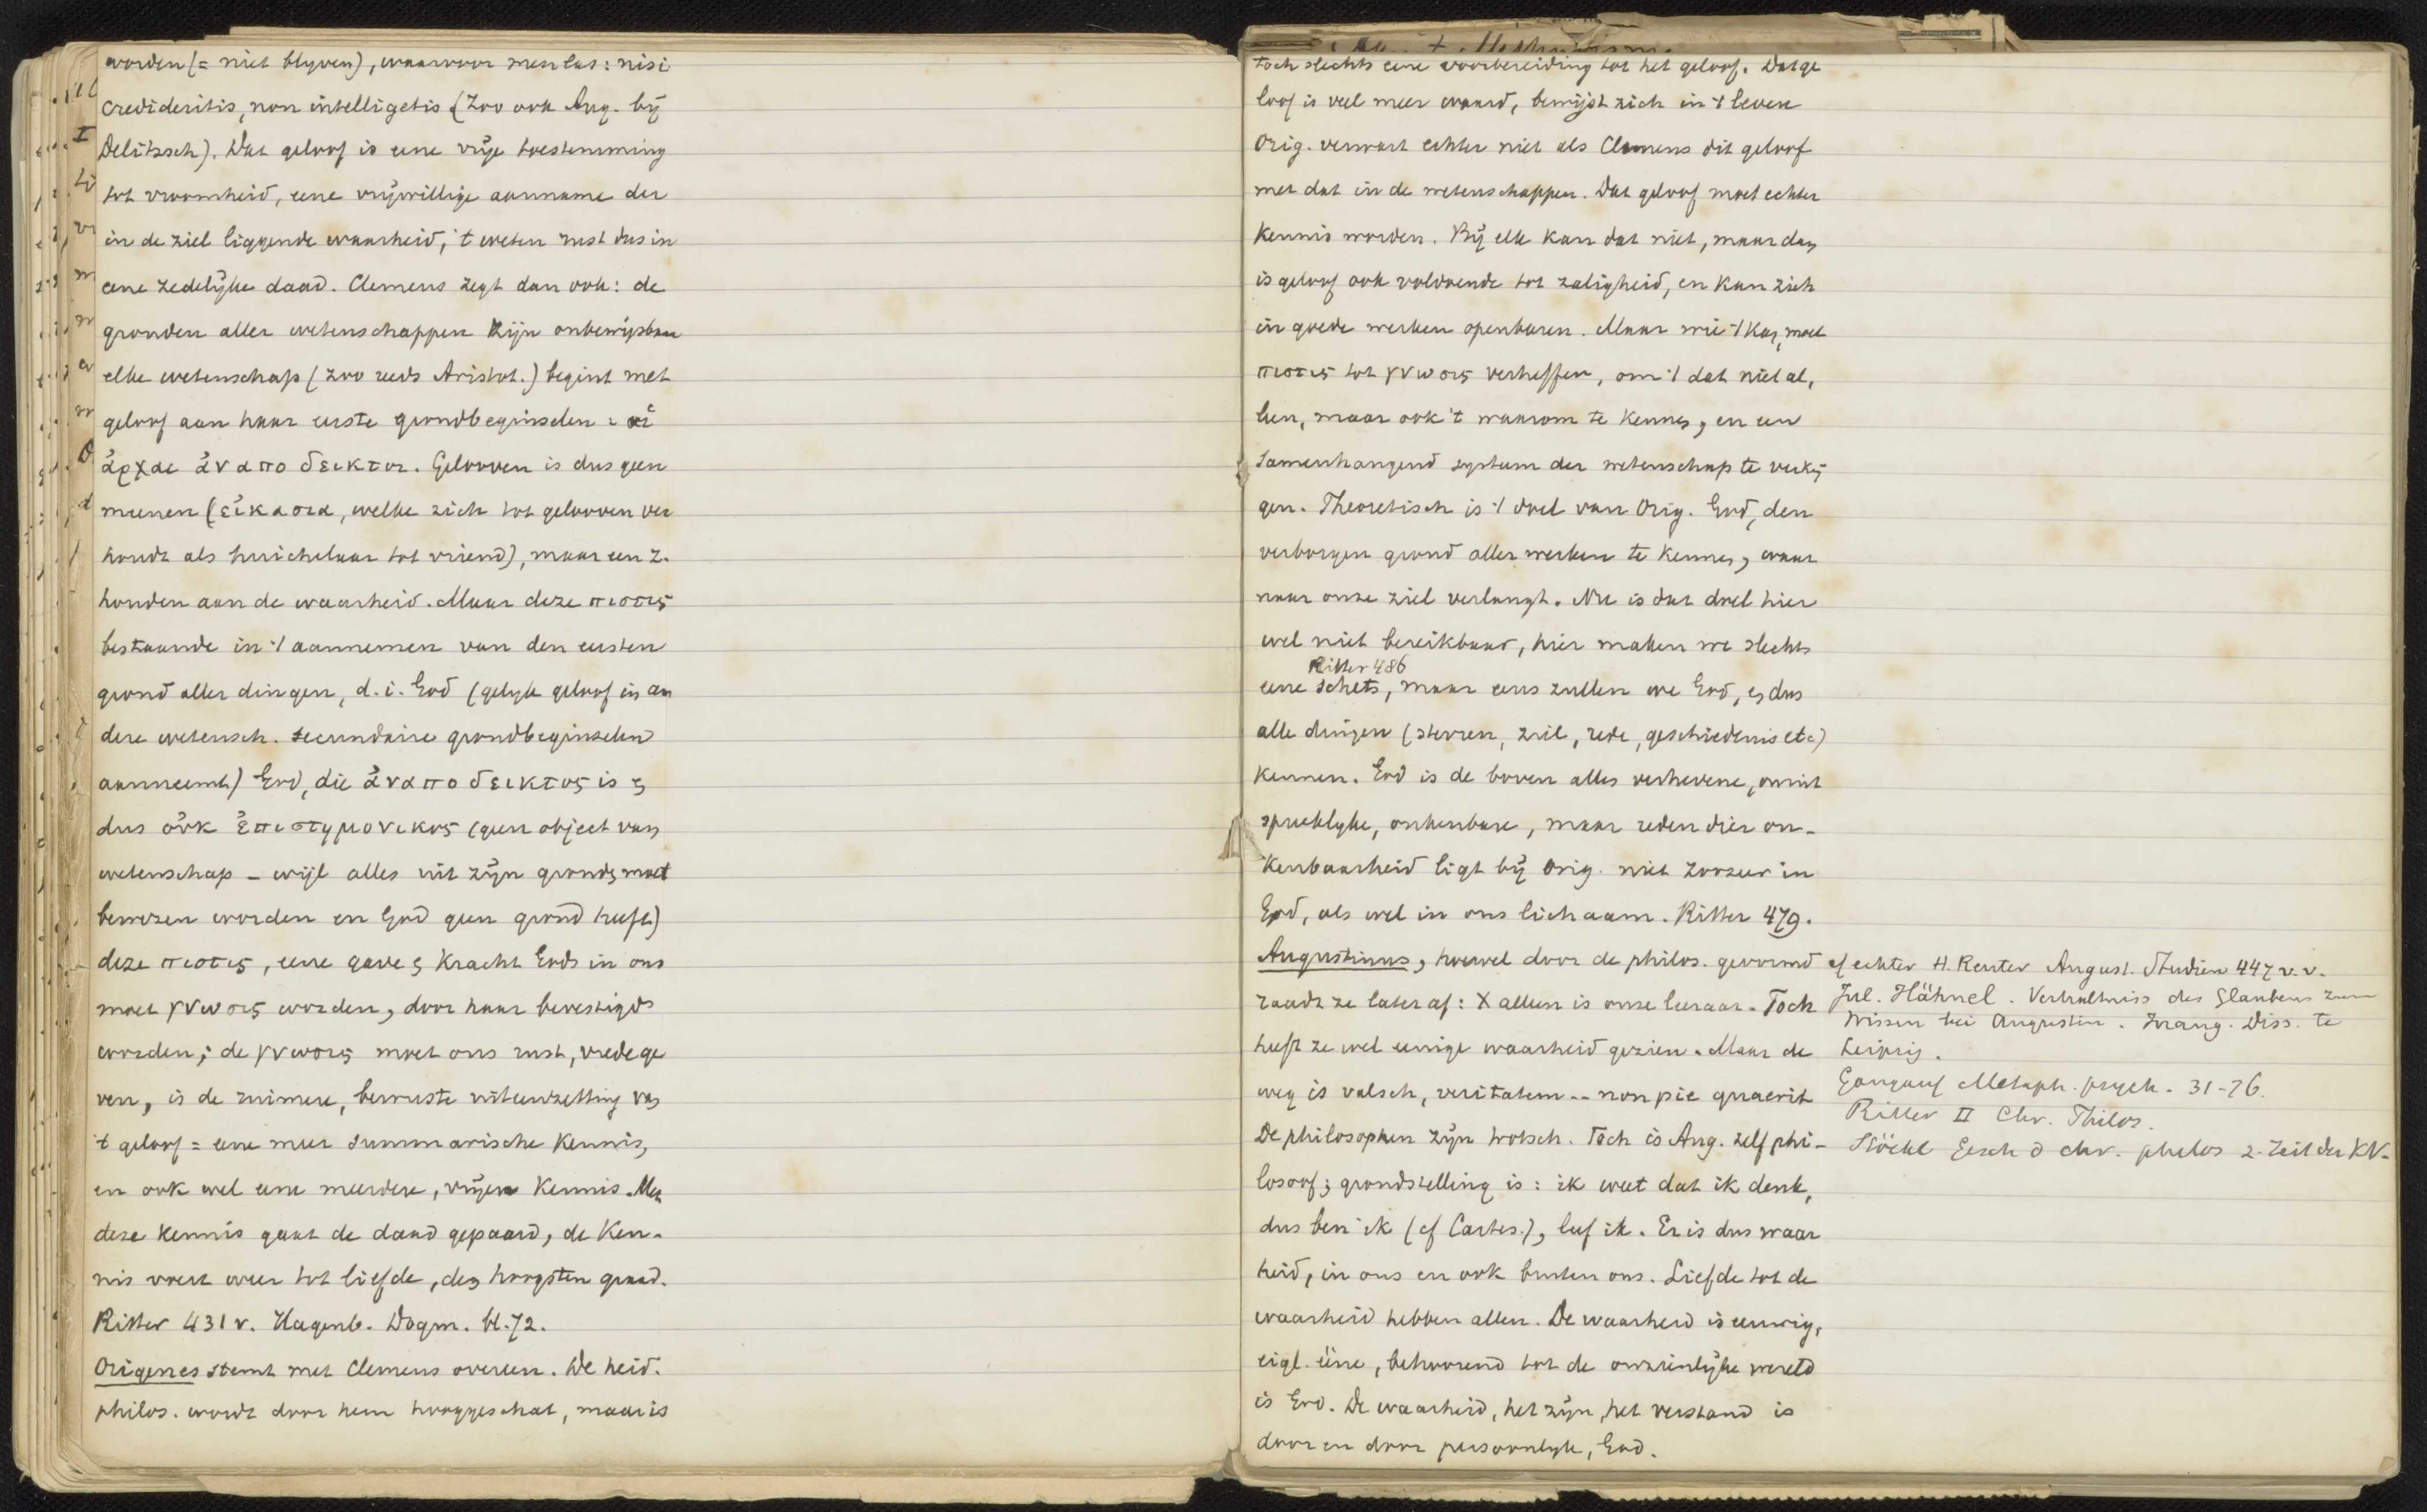 worden (= niet blyven), waarvoor men las: nisi
credideritis, non intelligetis (Zoo ook Aug. bij
Delitzsch). Dat geloof is eene vrije toestemming
tot vroomheid, eene vrijwillige aanname der
in de ziel liggende waarheid, 't weten rust dus in
eene zedelijke daad. Clemens zegt dan ook: de
gronden aller wetenschappen zijn onbewijsbaar
elke wetenschap (zoo reeds Aristot.) begint met
geloof aan haar eerste grondbeginselen: αἱ
ἀρχαι ἀναποδεικτοι. Gelooven is dus geen
meenen (εἰκασια, welke zich tot gelooven ver
houdt als huichelaar tot vriend), maar een z.
houden aan de waarheid. Maar deze πιστις
bestaande in 't aannemen van den eersten
grond aller dingen, d. i. God (gelyk geloof in an
dere wetensch. secundaire grondbeginselen
aanneemt) God, die ἀναποδεικτος is en
dus οὐκ ἐπιστημονικος (geen object van
wetenschap - wijl alles uit zijn gronden moet
bewezen worden en God geen grond heeft)
deze πιστις, eene gave en kracht Gods in ons
moet γνωσις worden, door haar bevestigd
worden; de γνωσις moet ons rust, vrede ge
ven, is de ruimere, bewuste uiteenzetting van
't geloof = eene meer summarische kennis,
en ook wel eene meerdere, vrijere kennis. Met
deze kennis gaat de daad gepaard, de ken-
nis voert weer tot liefde, den hoogsten graad.
Ritter 431 v. Hagenb. Dogm. bl. 72.
Origenes stemt met Clemens overeen. De heid.
philos. wordt door hem hooggeschat, maar is
toch slechts eene voorbereiding tot het geloof. Dat ge
loof is veel meer waard, bewijst zich in 't leven
Orig. verwart echter niet als Clemens dit geloof
met dat in de wetenschappen. Dat geloof moet echter
kennis worden. Bij elk kan dat niet, maar dan
is geloof ook voldoende tot zaligheid, en kan zich
in goede werken openbaren. Maar wie 't kan, moet
πιστις tot γνωσις verheffen, om 't dat niet al,
leen, maar ook 't waarom te kennen, en een
samenhangend systeem der wetenschap te verkrij
gen. Theoretisch is 't doel van Orig. God, den
verborgen grond aller werken te kennen, waar
naar onze ziel verlangt. Nu is dat doel hier
wel niet bereikbaar, hier maken we slechts
Ritter 486
eene schets, maar eens zullen we God, en dus
alle dingen (sterren, ziel, rede, geschiedenis etc)
kennen. God is de boven alles verhevene, onuit
spreeklyke, onkenbare, maar reden dier on-
kenbaarheid ligt bij Orig. niet zoozeer in
God, als wel in ons lichaam. Ritter 479.
Augustinus, hoewel door de philos. gevormd
raadt ze later af: X alleen is onze leeraar. Toch
heeft ze wel eenige waarheid gezien. Maar de
weg is valsch, veritatem -- non pie quaerit
De philosophen zijn trotsch. Toch is Aug. zelf phi-
losoof; grondstelling is: ik weet dat ik denk,
dus ben ik (cf Cartes.), leef ik. Er is dus waar
heid, in ons en ook buiten ons. Liefde tot de
waarheid hebben allen. De waarheid is eeuwig,
eigl. ééne, behoorend tot de onzienlijke wereld
is God. De waarheid, het zijn, het verstand is
door en door persoonlyk, God.
cf echter H. Reuter August. Studien 447 v.v.
Jul. Hähnel. Verhältniss des Glaubens zum
Wissen bei Augustin. Inaug. Diss. te
Leipzig.
Gangauf Metaph. psych. 31-76.
Ritter II Chr. Philos.
Stöckl Gesch d chr. philos z. Zeit der KV.